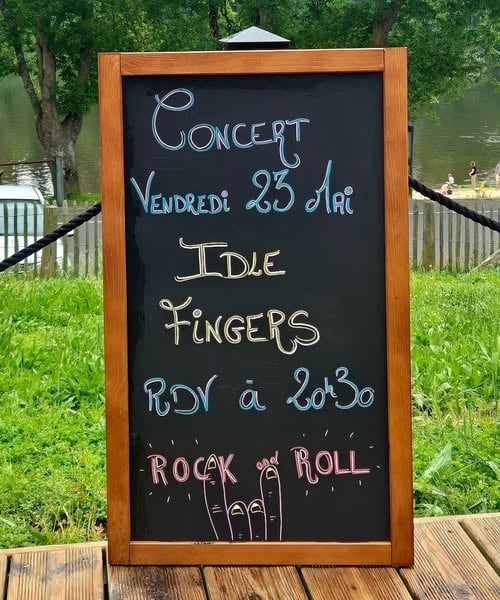 Concert
Vendredi 23 Mai
Idle
Fingers
RDV à 20h30
Rock and Roll